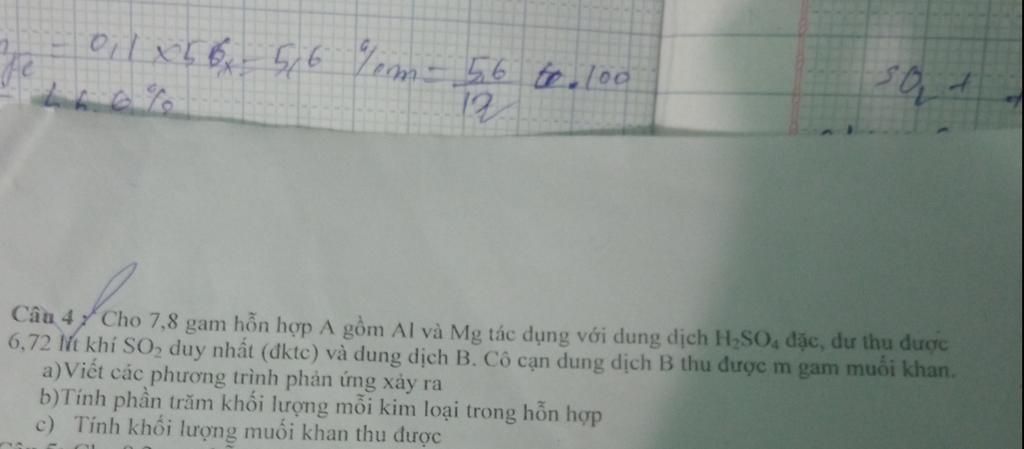 = 0,1 x 56 = 5,6 %m = 5,6 / 12 . 100
SO₂ +
6 %
Câu 4 : Cho 7,8 gam hỗn hợp A gồm Al và Mg tác dụng với dung dịch H₂SO₄ đặc, dư thu được
6,72 lít khí SO₂ duy nhất (đktc) và dung dịch B. Cô cạn dung dịch B thu được m gam muối khan.
a)Viết các phương trình phản ứng xảy ra
b)Tính phần trăm khối lượng mỗi kim loại trong hỗn hợp
c) Tính khối lượng muối khan thu được